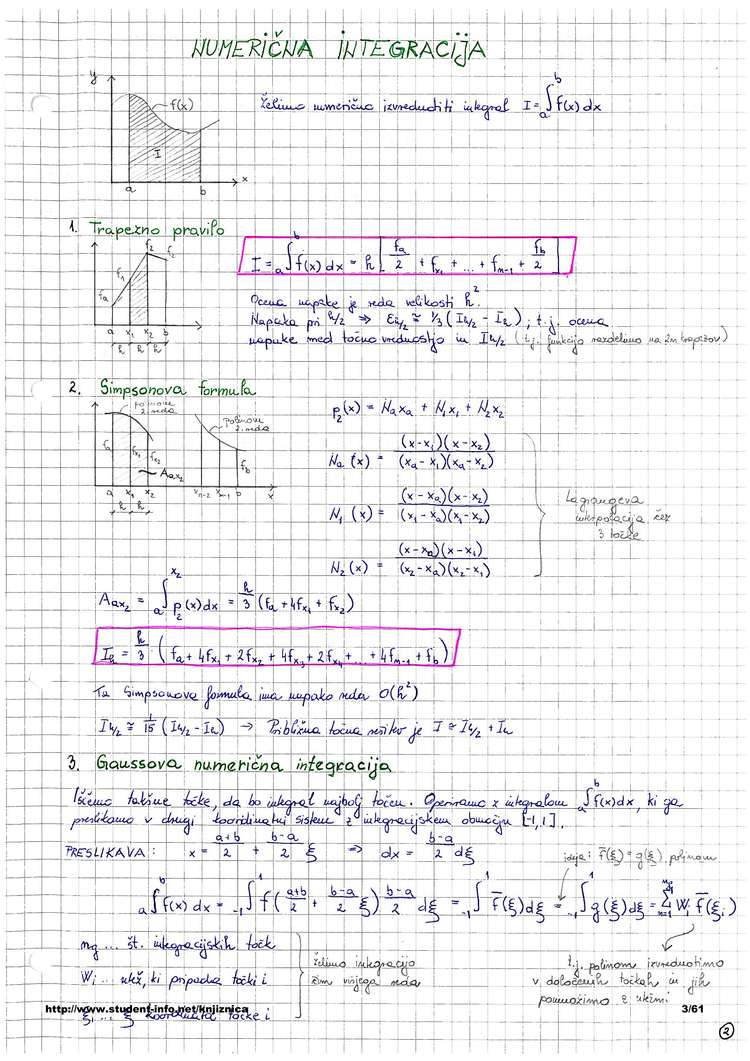 NUMERIČNA INTEGRACIJA
y
f(x)
I
a b x
Želimo numerično izvrednotiti integral I = a∫b f(x) dx
1. Trapezno pravilo
fa f1 f2
a x1 x2 b
h h h
I = a∫b f(x) dx = h [ fa/2 + fx1 + ... + fn-1 + fb/2 ]
Ocena napake je reda velikosti h².
Napaka pri h/2 ⇒ Eh/2 ≅ 1/3 (Ih/2 - Ih) ; t.j. ocena
napake med točno vrednostjo in Ih/2 (t.j. funkcijo razdelimo na 2n trapezov)
2. Simpsonova formula
polinom
2. reda
polinom
2. reda
fa fx1 fx2
Aax2
fb
a x1 x2 xn-2 xn-1 b x
h h
p2(x) = Na xa + N1 x1 + N2 x2
Na (x) = (x-x1)(x-x2) / (xa-x1)(xa-x2)
N1 (x) = (x-xa)(x-x2) / (x1-xa)(x1-x2)
N2 (x) = (x-xa)(x-x1) / (x2-xa)(x2-x1)
Lagrangeva
interpolacija čez
3 točke
Aax2 = a∫x2 p2(x) dx = h/3 (fa + 4fx1 + fx2)
Ih = h/3 · ( fa + 4fx1 + 2fx2 + 4fx3 + 2fx4 + ... + 4fn-1 + fb )
Ta Simpsonova formula ima napako reda O(h²)
Ih/2 ≅ 1/15 (Ih/2 - Ih) → Približna točna rešitev je I ≅ Ih/2 + Ih
3. Gaussova numerična integracija
Iščemo takšne točke, da bo integral najbolj točen. Operiramo z integralom a∫b f(x) dx, ki ga
preslikamo v drugi koordinatni sistem z integracijskem območju [-1,1].
PRESLIKAVA: x = a+b/2 + b-a/2 ξ ⇒ dx = b-a/2 dξ
ideja: f̄(ξ) = g(ξ), polinom
a∫b f(x) dx = -1∫1 f( a+b/2 + b-a/2 ξ ) b-a/2 dξ = -1∫1 f̄(ξ) dξ = -1∫1 g(ξ) dξ = Σ Wi f̄(ξi)
ng ... št. integracijskih točk
Wi ... utež, ki pripada točki i
ξi ... ξ koordinata točke i
želimo integracijo
čim višjega reda
t.j. polinom izvrednotimo
v določenih točkah in jih
pomnožimo z utežmi
http://www.student-info.net/knjiznica
3/61
2